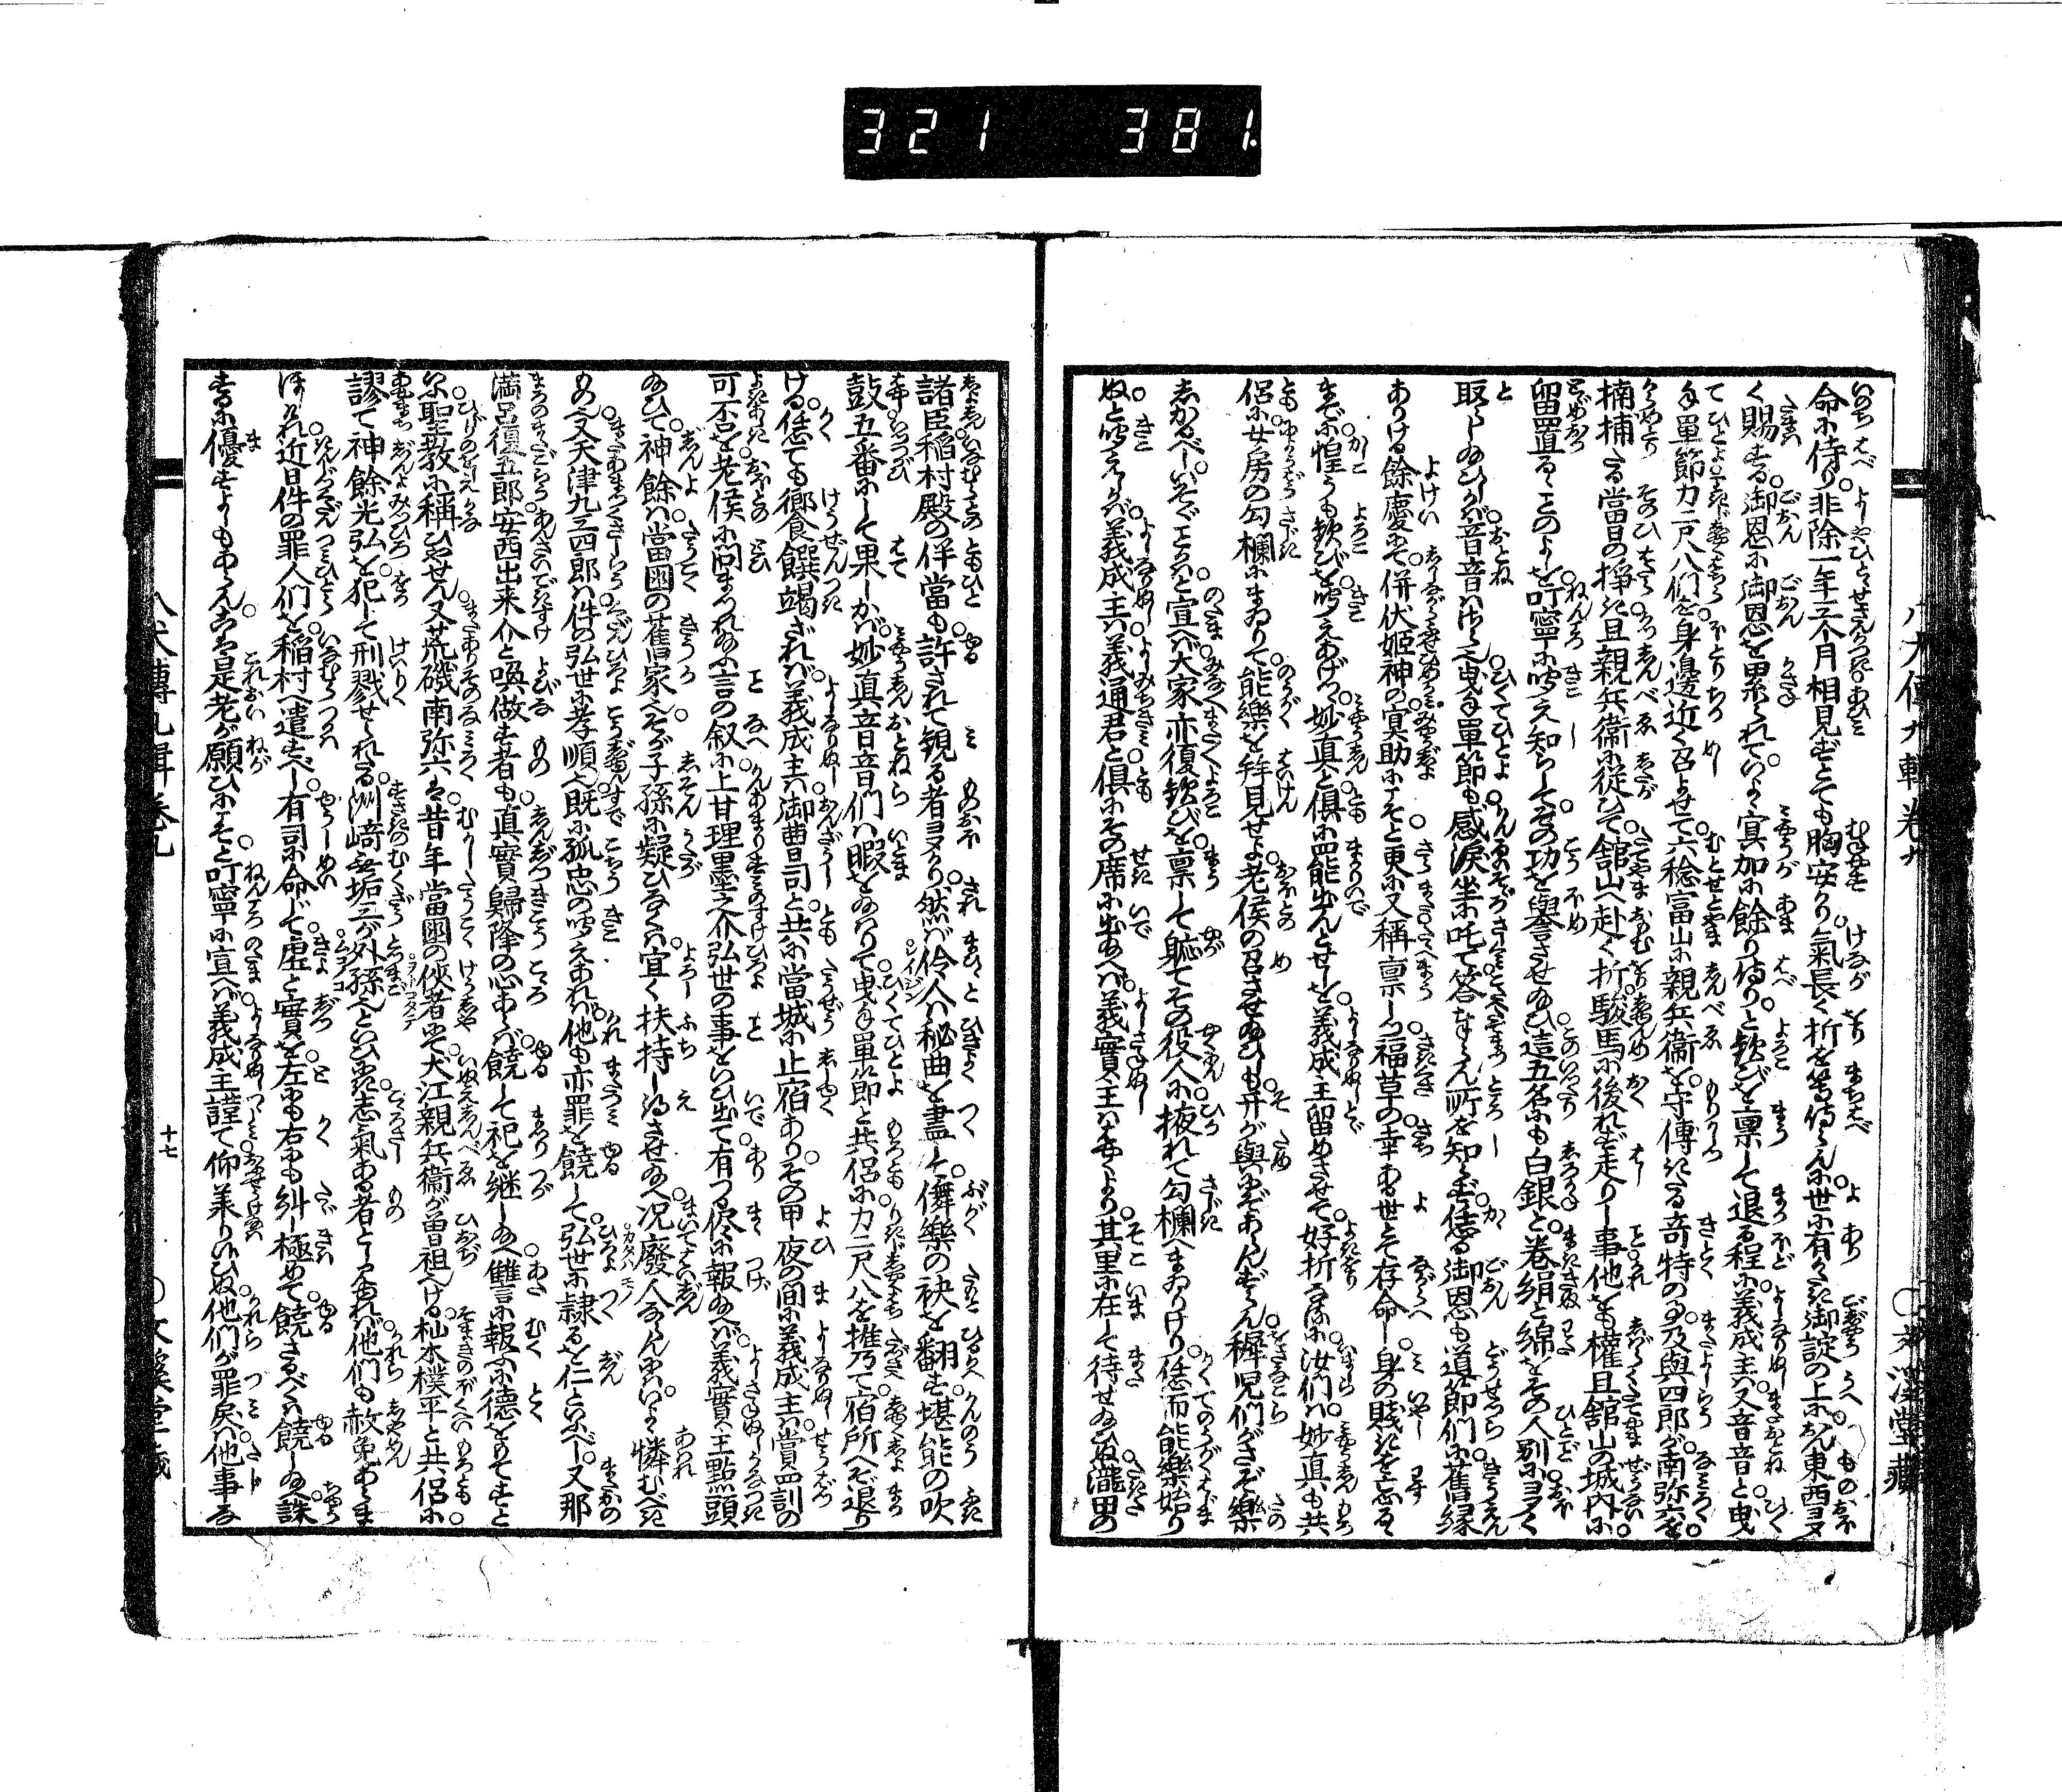 321 381
八犬傳九輯卷九
○文溪堂藏
命に侍り。非除一年二个月相見ずとても胸安かり。氣長く折を等侍らんに世に有がたき御諚の上になほ東西ヨヌ
く賜する御恩に御恩を累られて。いよゝ冥加に餘り侍りと歡びを稟して退る程に義成主は又音音と曳
手單節力二尺八們を身邊近く召よせて六稔富山に親兵衞を守傅きたる奇特の事。及與四郎が南弥六を
搦捕たる當日の挊き且親兵衞に從ひて舘山へ赴く折駿馬に後れず走りし事他をも權且舘山の城内に
留置るゝよしを叮寧に聞え知らしてその功を譽させ給ひ這五名にも白銀と卷絹と綿をその人別にヨヌく
取らし給ひしが音音はさら也曳手單節も感涙坐に吐て答まうさん所を知らず恁る御恩も道節們に舊縁
ありける餘慶にて。併伏姫神の冥助にこそと東に又稱稟しつ福草の幸ある世とて存命し身の賤きを忘るゝ
までに惶うも歡びを聞えあげつ妙真と倶に罷出んとせしを義成主留めさせて好折なるに汝們は妙真も共
侶に女房の勾欄にまゐりて能樂を拜見せよ老侯の召させ給ひしも弁が與にぞあらんずらん穉児們がさぞ樂
しかるべし。いそげよかしと宣へば大家亦復歡びを稟して軈てその役人に掖れて勾欄へまゐりけり恁而能樂始り
ぬと聞えしかば義成主は義通君と倶にその席に出給へば義實主ははやくより其里に在して待せ給ひぬ瀧田の
諸臣稲村殿の伴當も許されて観る者ヨヌかり然ば伶人は秘曲を盡して儛樂の袂を翻す堪能の吹
鼓五番にして果しかば妙真音音們は暇を給はりて曳手單節と共侶に力二尺八を携乃て宿所へぞ退り
ける恁ても郷食饌竭ざれば義成主は御曹司と共に當城に止宿ありその甲夜の間に義成主は賞罰の
可否を老侯に問まつられ給ふに言の叙に上甘理墨之介弘世の事をいひ出て有つる儘に報給へば義實主點頭
給ひて神餘は當國の舊家へそが子孫に疑ひなくは宜く扶持し得させ給へ况廢人ならんには。いよゝ憐むべき
のみ又天津九三四郎は件の弘世に孝順へ既に孤忠の聞えあれば他も亦罪を饒して弘世に隷るを仁といふべし。又那
満呂復五郎安西出来介と喚做す者も真實歸降の心あらば饒して祀を継し給へ讐に報ふに德をもてすと
いふ聖教に稱ひやせん又荒磯南弥六は昔年當國の俠者にて犬江親兵衞が曾祖へける杣木樸平と共侶に
謬て神餘光弘を犯して刑戮せられたる洲﨑無垢三が外孫へといひ志氣ある者としあれば他們も赦免あらま
ほしけれ近日件の罪人們を稲村へ遣すべし有司に命じて虚と實を左も右も糾し極めて饒さるべくは饒し給へ誅
するに優すよしもあらんかは是老が願ひにこそと叮寧に宣へば義成主謹て仰承りはひぬ他們が罪戻は他事な
八犬傳九輯卷九
十七
○文溪堂藏